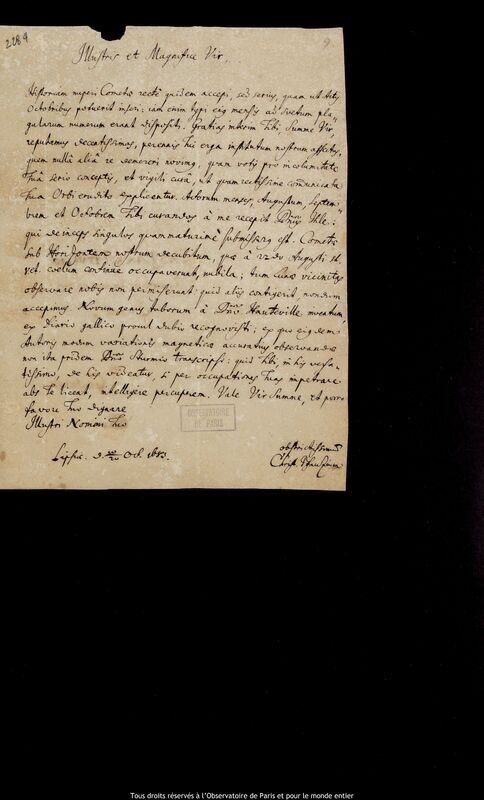 2284
9
Illustris et Magnifice Vir,
Historiam nuperi Cometae rectè quidem accepi, sed serius, quam ut Actis
Octobribus potuerit inseri: iam enim typi eius mensis ad suetum pla-
gularum numerum erant dispositi. Gratias interim Tibi, Summe Vir,
reputamus decentissimas, perennis tui erga institutum nostrum affectus,
quem nullâ aliâ re demereri novimus, quam votis pro incolumitate
Tuâ serio conceptis, et vigili curâ, ut quam rectissime communicata
Tua Orbi erudito explicentur. Actorum menses, Augustum, Septem-
brem et Octobrem Tibi curandos à me recepit Dnus Ihle:
qui deinceps singulos quam maturimè submissurus est. Cometae
sub Horizontem nostrum decubitum, quae à 22do Augusti st.
vet. coelum continue occupaverunt, nubila; tum Lunae vicinitas
observare nobis non permiserunt: quid aliis contigerit, nondum
accepimus. Novum genus tuborum à Dno Hauteville inventum,
ex diario gallico procul dubio recognovisti: ex quo eiusdem
Autoris modum variationis magneticae accuratius observandae
non ita pridem Dnus Sturmius transcripsit: quid Tibi in his versa-
tissimo, de his videatur, si per occupationes tuas impetrare
abs Te liceat, intelligere percuperem. Vale Vir Summe, et porro
favore tuo dignare
Illustri Nomini Tuo
OBSERVATOIRE
DE PARIS
obstrictissimum
Christ. Pfautzium
Lipsiae. d. Oct. 1683.
Tous droits réservés à l'Observatoire de Paris et pour le monde entier